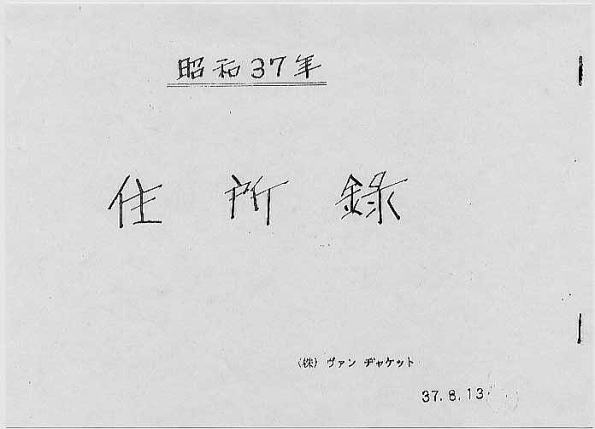 昭和37年
住所録
(株) ヴァン ヂャケット
37.8.13